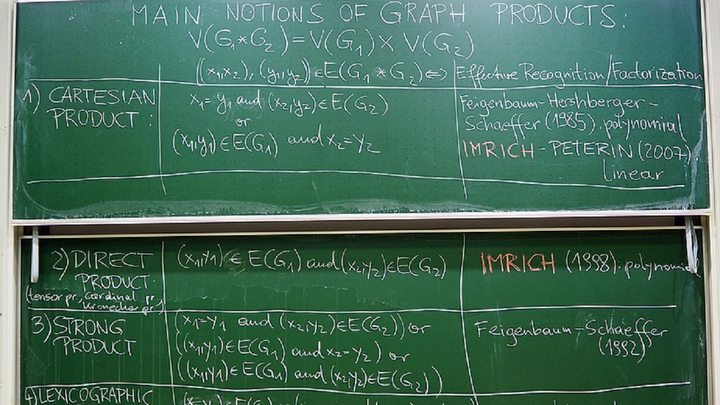 MAIN NOTIONS OF GRAPH PRODUCTS:
V(G₁*G₂) = V(G₁) × V(G₂)
((x₁,x₂), (y₁,y₂)) ∈ E(G₁*G₂) ⇔ Effective Recognition/Factorization
1) CARTESIAN PRODUCT:
x₁=y₁ and (x₂,y₂) ∈ E(G₂)
or
(x₁,y₁) ∈ E(G₁) and x₂=y₂
Feigenbaum-Hershberger-
Schaeffer (1985): polynomial
IMRICH-PETERIN (2007):
linear
2) DIRECT
PRODUCT
(tensor pr., cardinal pr.,
Kronecker pr.)
(x₁,y₁) ∈ E(G₁) and (x₂,y₂) ∈ E(G₂)
IMRICH (1998): polynomial
3) STRONG
PRODUCT
(x₁=y₁ and (x₂,y₂) ∈ E(G₂)) or
((x₁,y₁) ∈ E(G₁) and x₂=y₂) or
((x₁,y₁) ∈ E(G₁) and (x₂,y₂) ∈ E(G₂))
Feigenbaum-Schaeffer
(1992)
4) LEXICOGRAPHIC